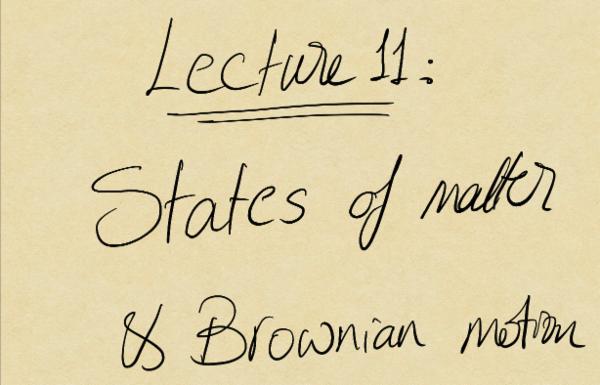 Lecture 11:
States of matter
& Brownian motion